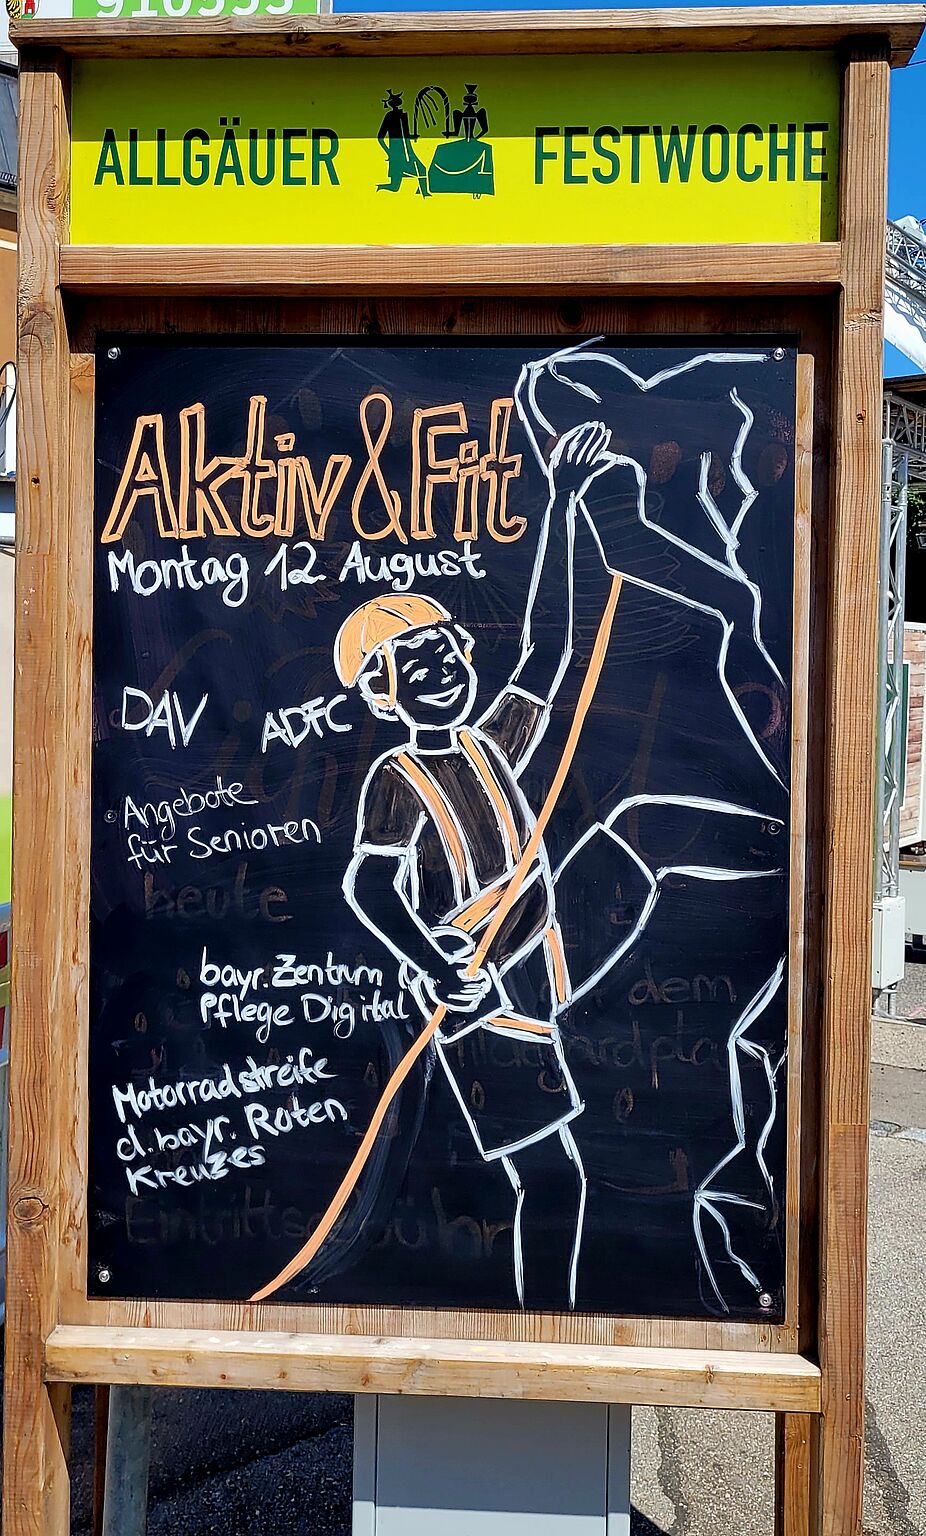 910393
ALLGÄUER FESTWOCHE
Aktiv & Fit
Montag 12 August
DAV ADFC
Angebote
für Senioren
heute
bayr. Zentrum
Pflege Digital
dem
Motorradstreife
d. bayr. Roten
Kreuzes